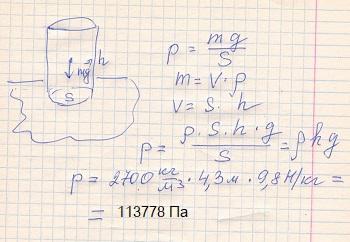 h
mg
S
p = mg/S
m = V · ρ
V = S · h
p = ρ · S · h · g / S = ρhg
p = 2700 кг/м3 · 4,3м · 9,8Н/кг =
= 113778 Па